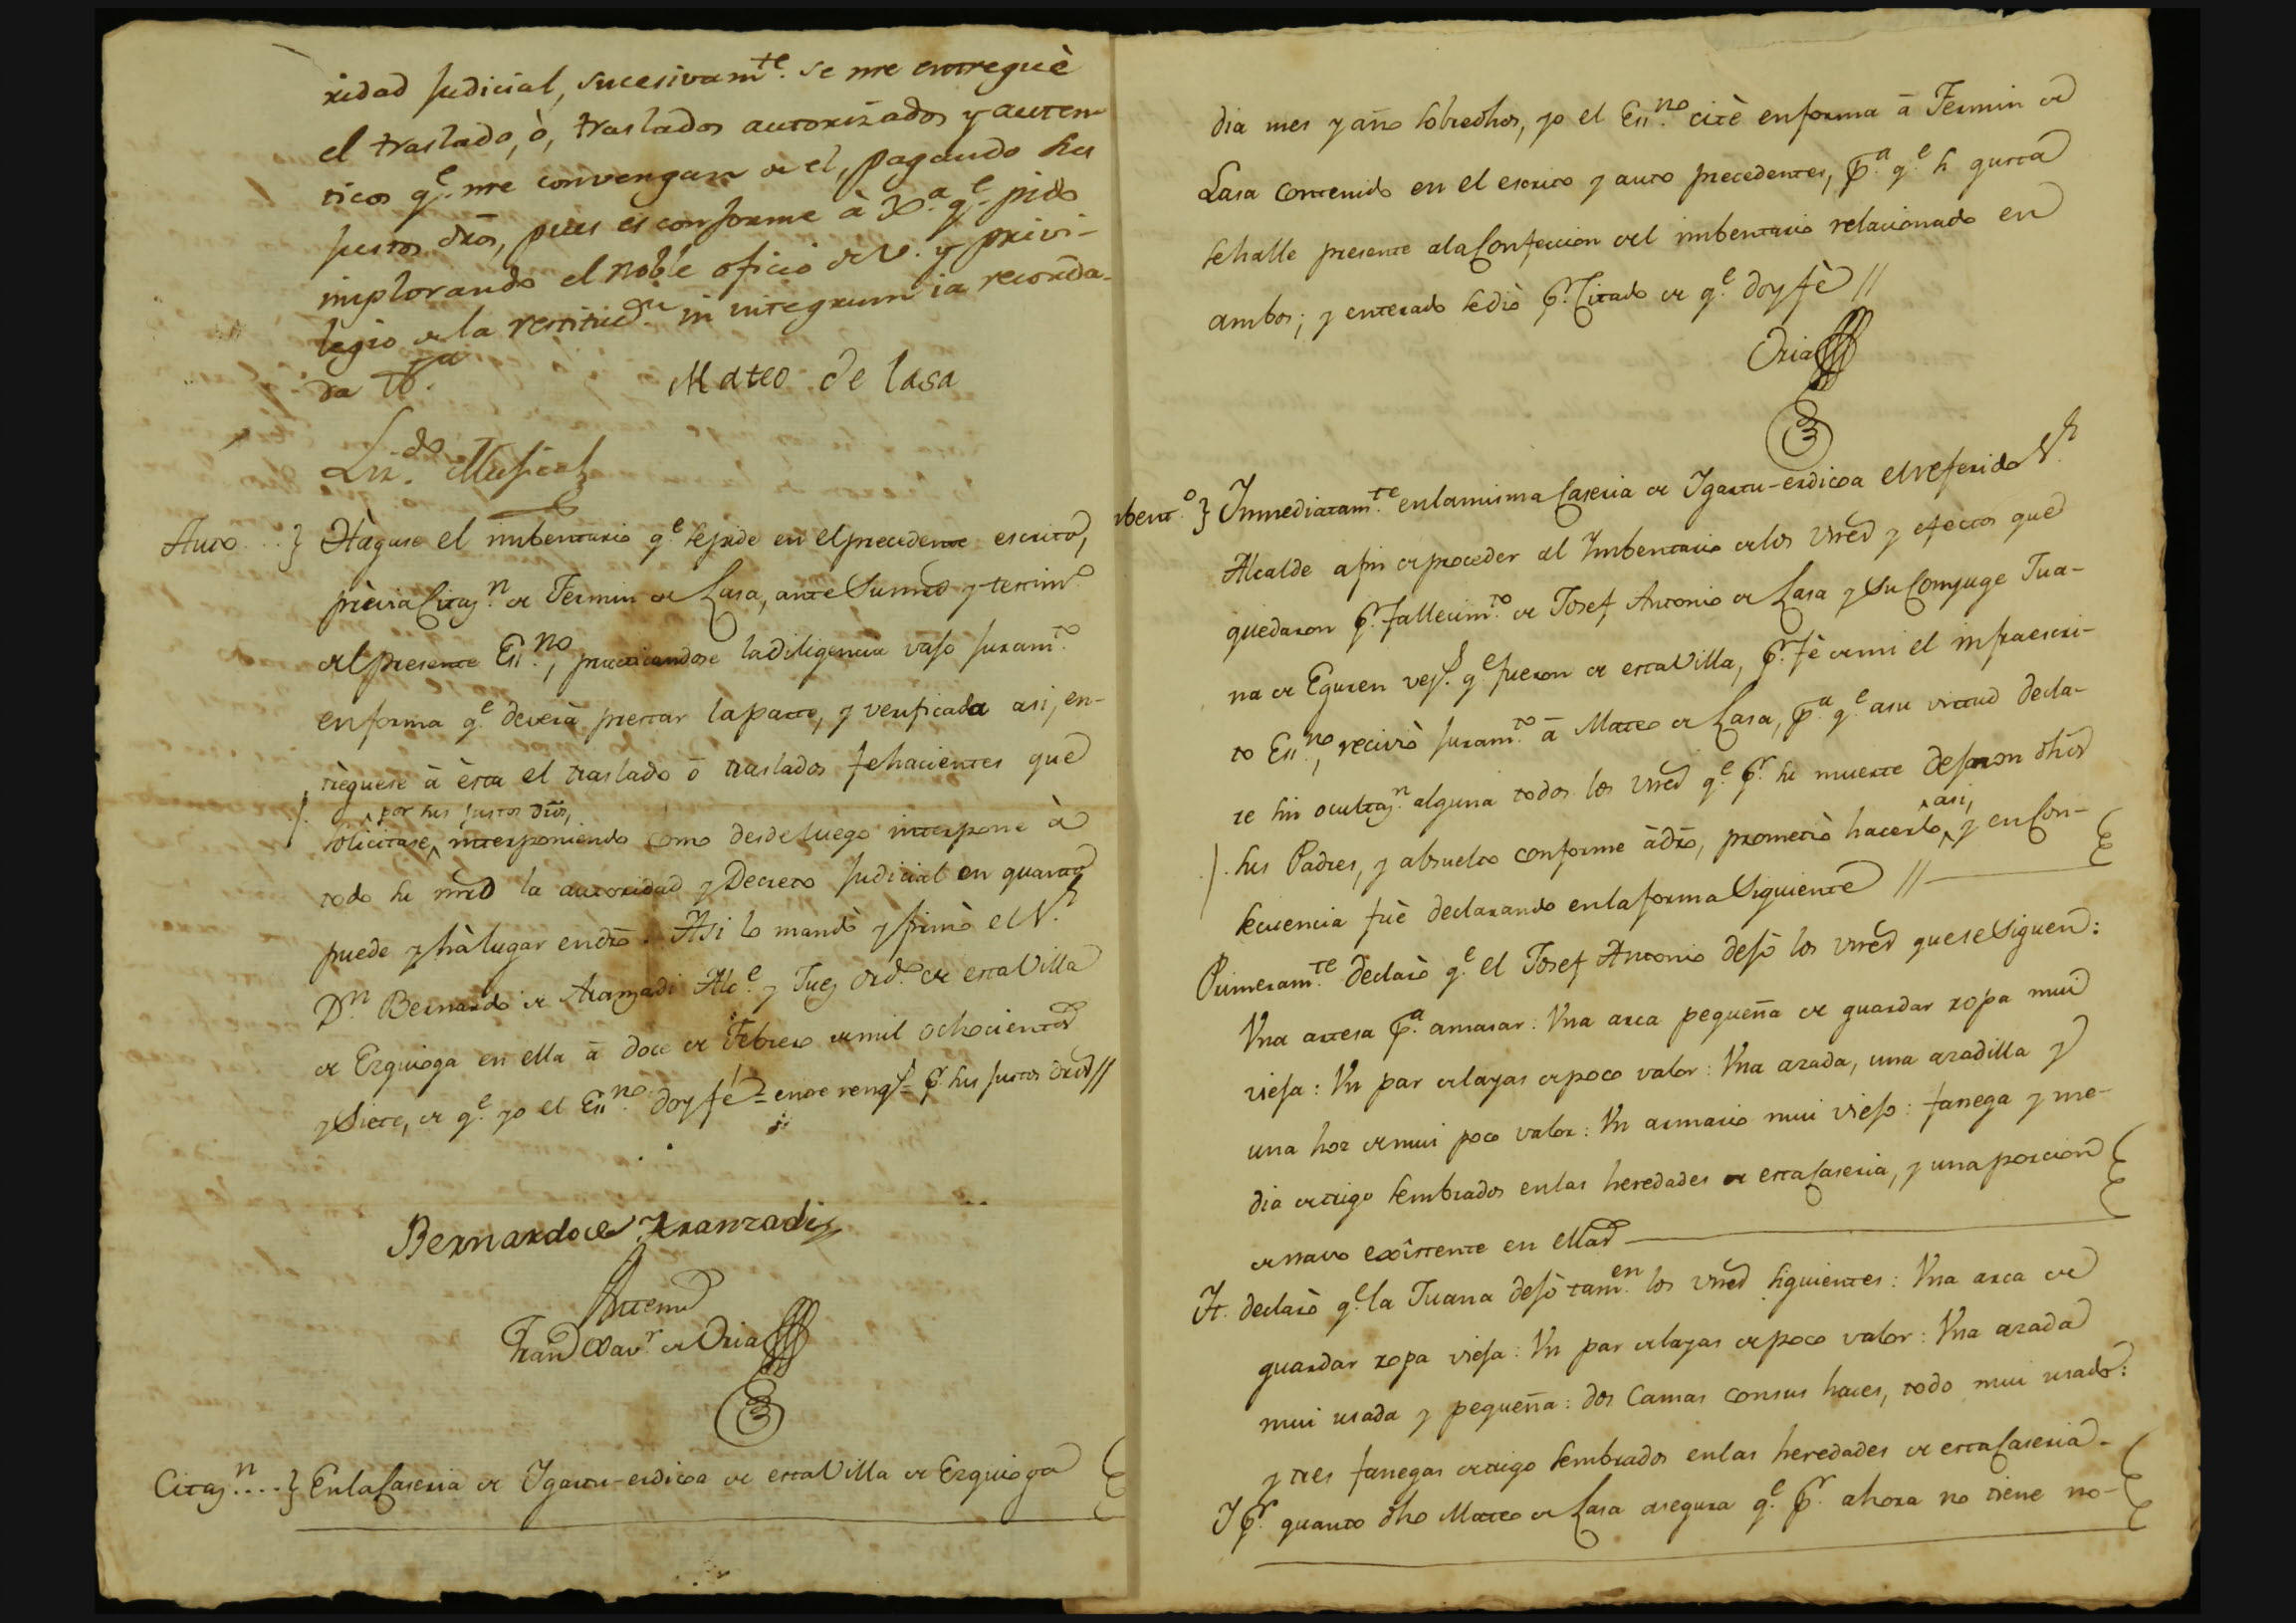 ridad judicial, sucesivam.te se me entreguè
el traslado, ò, traslados autorizados y auten
ticos q.e me convengan de el, pagando sus
justos dros, pues es conforme à xa. q.e pido
implorando el noble oficio de V. y privi-
legio de la restituc.n in integrum ia recorda-
da &.a
Mateo de lasa
Liz.do Mugica
Auto...} Hagase el imbentario q.e se pide en el precedente escrito,
prèvia Citaz.n de Fermin de Lasa, ante Su mrd y testim.o
del presente Es.no, practicandose la diligencia vajo juram.to
en forma q.e deverà prestar la parte, y verificada asi, en-
trèguese à èsta el traslado ò traslados fehacientes que
por sus justos dros,
solicitase, interponiendo como desde luego interpone à
todo su mrd la autoridad y Decreto judicial en quanto
puede y hà lugar en dro. Asi lo mandò y firmò el S.r
D.n Bernardo de Aranzadi Alc.e y Juez Ord.o de esta Villa
de Ezquioga en ella à doce de Febrero de mil ochocientos
y Siete, de q.e yo el Es.no doy fé = entre reng.s = p.r sus justos dros //
Bernardo de Aranzadi
Ante mi
Fran.co Xav.r de Oria
Citaz.n....} En la Caseria de Igartu-erdicoa de esta Villa de Ezquioga
dia mes y año sobredhos, yo el Es.no citè en forma à Fermin de
Lasa contenido en el escrito y auto precedentes, p.a q.e si gusta
se halle presente a la Confeccion del imbentario relacionado en
ambos; y enterado se diò p.r Citado de q.e doy fè //
Oria
nbent.o} Inmediatam.te en la misma Caseria de Igartu-erdicoa el referido S.r
Alcalde a fin de proceder al Imbentario de los vnes y efectos que
quedaron p.r fallecim.to de Josef Antonio de Lasa y Su Conyuge Jua-
na de Eguren vez.s q.e fueron de esta Villa, p.r fè de mi el infraescri-
to Es.no, recivió juram.to à Mateo de Lasa, p.a q.e a su virtud decla-
re sin ocultaz.n alguna todos los vnes q.e p.r su muerte dejaron dhos
asi,
sus Padres, y absuelto conforme à dro, prometiò hacerlo, y en Con-
secuencia fuè declarando en la forma Siguiente //
Primeram.te declarò q.e el Josef Antonio dejò los vnes que se Siguen:
Una artesa p.a amasar: Una arca pequeña de guardar ropa mui
vieja: Un par de layas de poco valor: Una azada, una azadilla y
una hoz de mui poco valor: Un armario mui viejo: fanega y me-
dia de trigo sembrados en las heredades de esta Caseria, y una porcion
de navo exîstente en ellas
It. declarò q.e la Juana dejò tam.en los vnes siguientes: Una arca de
guardar ropa vieja: Un par de layas de poco valor: Una azada
mui usada y pequeña: dos Camas con sus haces, todo mui usado:
y tres fanegas de trigo sembrados en las heredades de esta Caseria.
I p.r quanto dho Mateo de Lasa asegura q.e p.r ahora no tiene no-